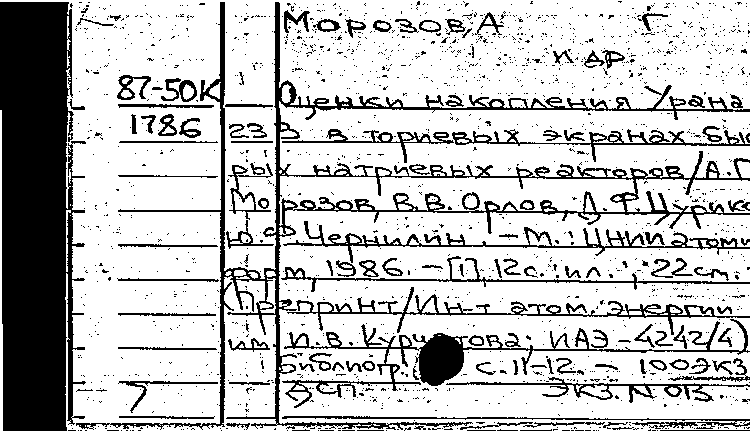 Морозов, А Г
и др.
87-50К Оценки накопления Урана
1786 233 в ториевых экранах быс
рых натриевых реакторов/А.Г.
Морозов, В.В. Орлов, Л.Ф. Цурико
Ю.Ф. Чернилин. – М.: ЦНИИатоми
форм, 1986. – [1], 12с.: ил.; 22см.
(Препринт/Ин-т атом. энергии
им. И.В. Курчатова; ИАЭ-4242/4)
Библиогр.: с.11-12. – 100экз
ДСП. ЭКЗ. N 013.